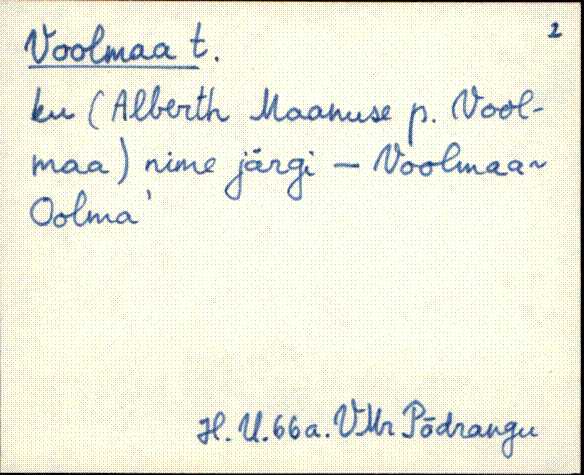 2
Voolmaa t.
ku (Alberth Maanuse p. Vool-
maa) nime järgi – Voolmaa ~
Oolma'
H. U. 66a. VMr Põdrangu